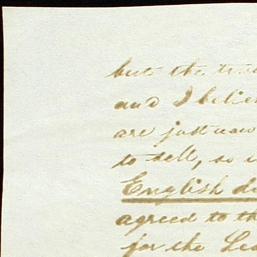 but the
and I
are just now
to sell, so
English
agreed to
for the